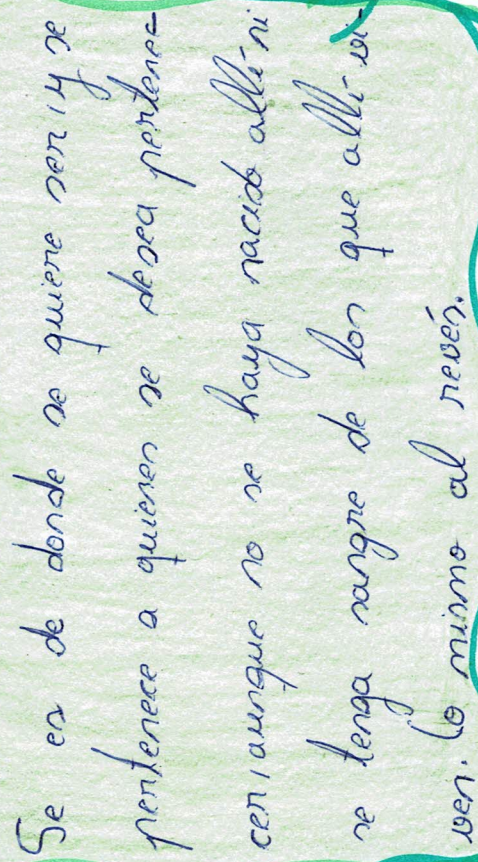 Se es de donde se quiere ser, y se
pertenece a quienes se desea pertene-
cer, aunque no se haya nacido allí ni
se tenga sangre de los que allí vi-
ven. Lo mismo al revés.